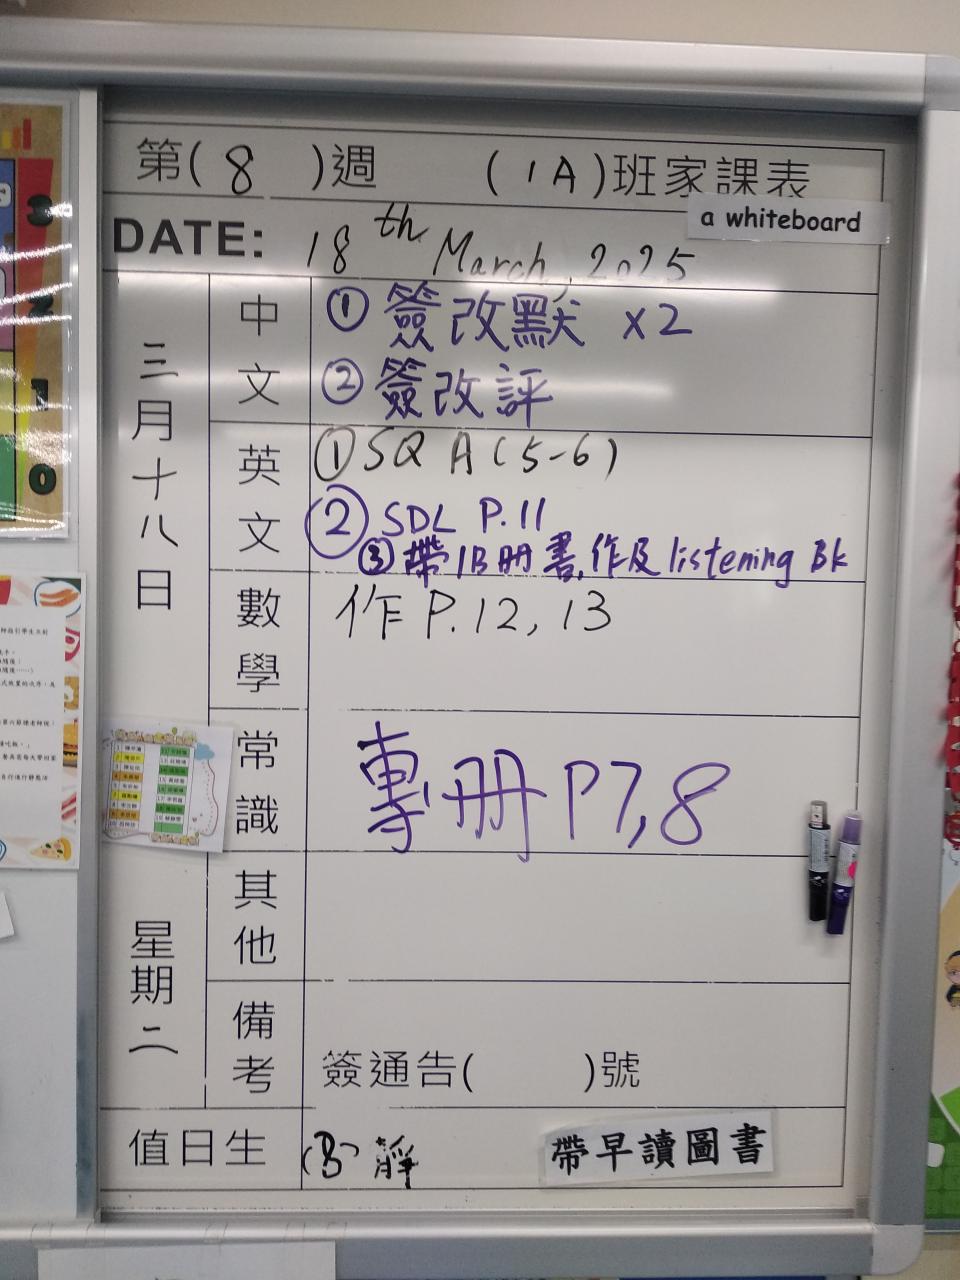 第( 8 )週 (1A)班家課表
a whiteboard
DATE: 18th March, 2025
三月十八日
星期二
中文
① 簽改默 x2
② 簽改評
英文
① SQ A (5-6)
② SDL P.11
③ 帶1B冊書,作及listening Bk
數學
作 P.12, 13
常識
專冊 P7,8
其他
備考
簽通告( )號
值日生
靜
帶早讀圖書
3
2
1
0